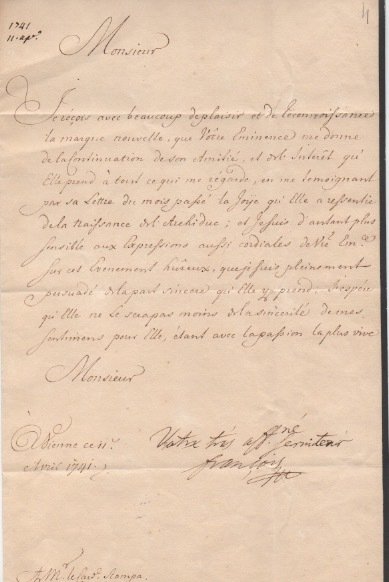 1741
11. apr.
Monsieur
Je reçois avec beaucoup de plaisir et de reconnoissance
la marque nouvelle, que Votre Eminence me donne
de la continuation de son Amitié, et de l'Interêt qu'
Elle prend à tout ce qui me regarde, en me temoignant
par sa Lettre du mois passé la Joye qu'Elle a ressentie
de la Naissance de l'Archiduc; et je suis d'autant plus
sensible aux Expressions aussi cordiales de Vre. Emce.
sur cet Evenement hûreux, que je suis pleinement
persuadé de la part sincere qu'Elle y prend. J'espere
qu'Elle ne le sera pas moins de la sincerité de mes
sentimens pour Elle, étant avec la passion la plus vive
Monsieur
A Vienne ce 11e.
Avril 1741.
Votre très aff.né serviteur
François
A Mr. le Card. Stampa.